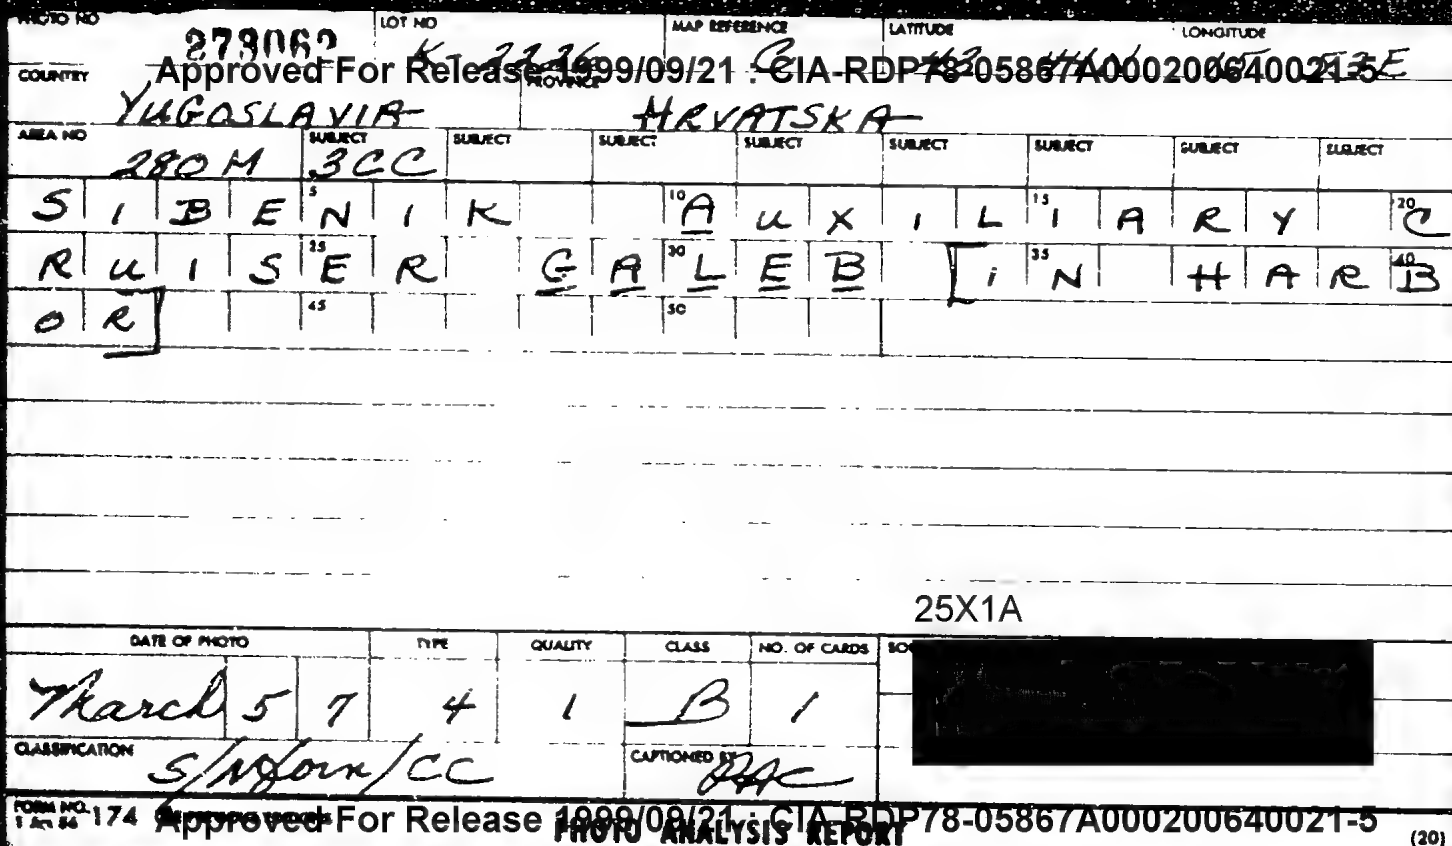 PHOTO NO 273062 LOT NO K-2226 MAP REFERENCE C LATITUDE 43 44N LONGITUDE 15 53E
Approved For Release 1999/09/21 : CIA-RDP78-05867A000200640021-5
COUNTRY YUGOSLAVIA PROVINCE HRVATSKA
AREA NO 280M SUBJECT 3CC SUBJECT SUBJECT SUBJECT SUBJECT SUBJECT SUBJECT SUBJECT
SIBENIK 5 10 AUXILIARY 15 20 C
RUISER 25 GALEB 30 [iN 35 HARB 40
OR] 45 50
25X1A
DATE OF PHOTO TYPE QUALITY CLASS NO. OF CARDS
March 5 7 4 1 B 1
CLASSIFICATION S/Noforn/CC CAPTIONED BY
FORM NO. 174
Approved For Release 1999/09/21 : CIA-RDP78-05867A000200640021-5
PHOTO ANALYSIS REPORT (20)